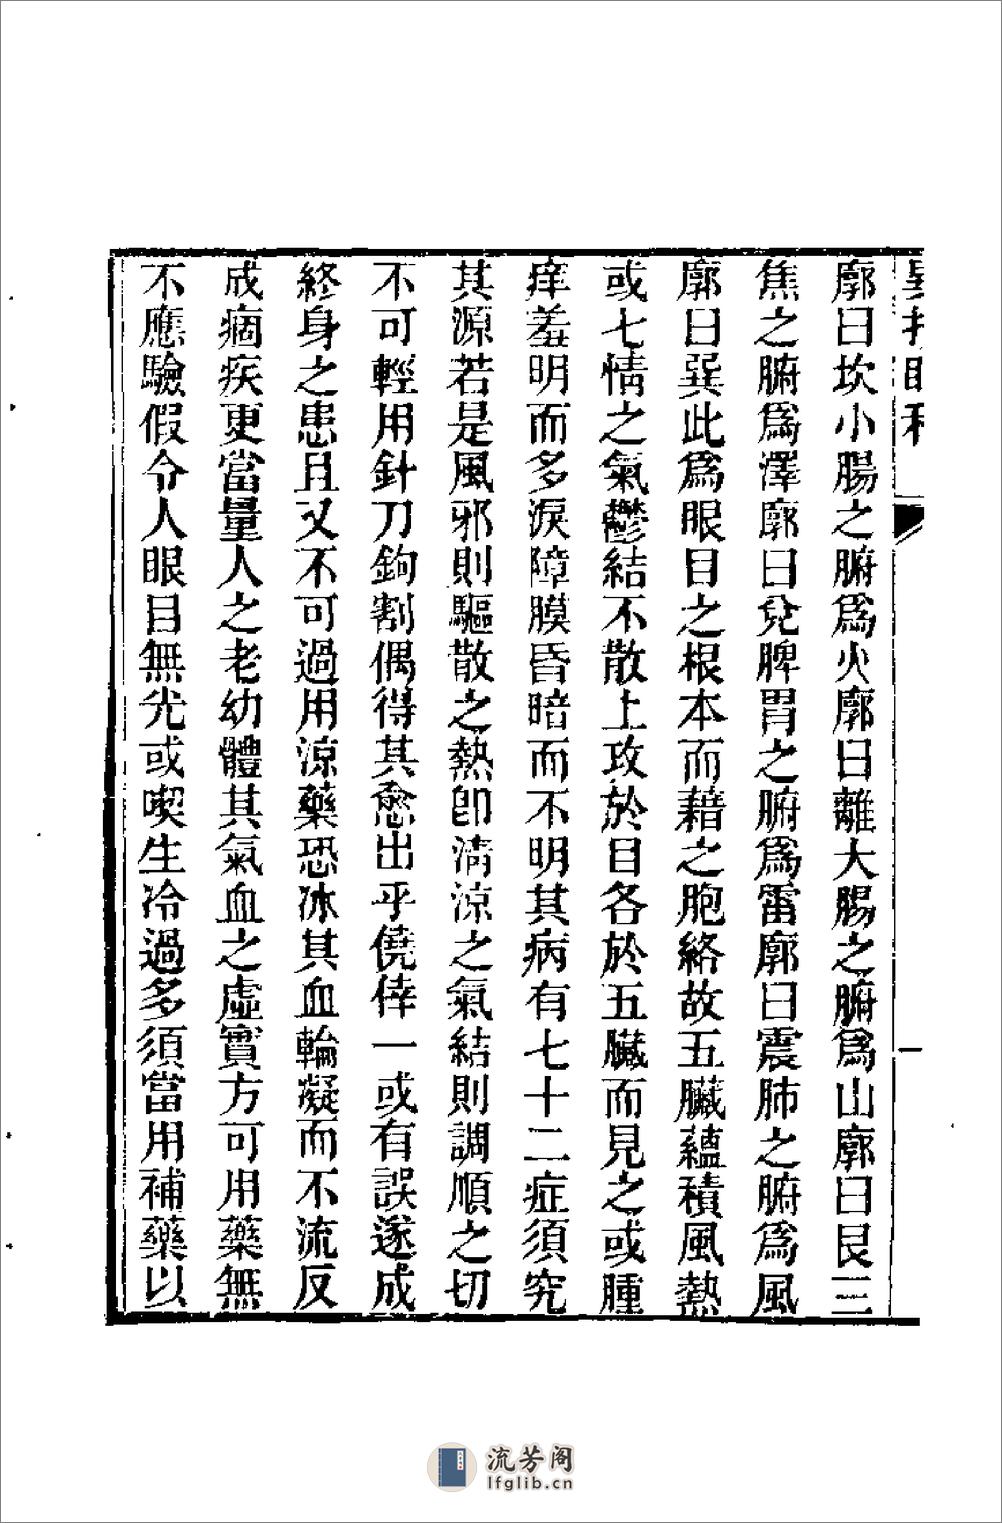 廓曰坎小腸之腑爲火廓曰離大腸之腑爲山廓曰艮三
焦之腑爲澤廓曰兌脾胃之腑爲雷廓曰震肺之腑爲風
廓曰巽此爲眼目之根本而藉之胞絡故五臟蘊積風熱
或七情之氣鬱結不散上攻於目各於五臟而見之或腫
痒羞明而多淚障膜昏暗而不明其病有七十二症須究
其源若是風邪則驅散之熱卽淸涼之氣結則調順之切
不可輕用針刀鉤割偶得其愈出乎僥倖一或有誤遂成
終身之患且又不可過用涼藥恐冰其血輪凝而不流反
成痼疾更當量人之老幼體其氣血之虛實方可用藥無
不應驗假令人眼目無光或喫生冷過多須當用補藥以
一
流芳阁
lfglib.cn